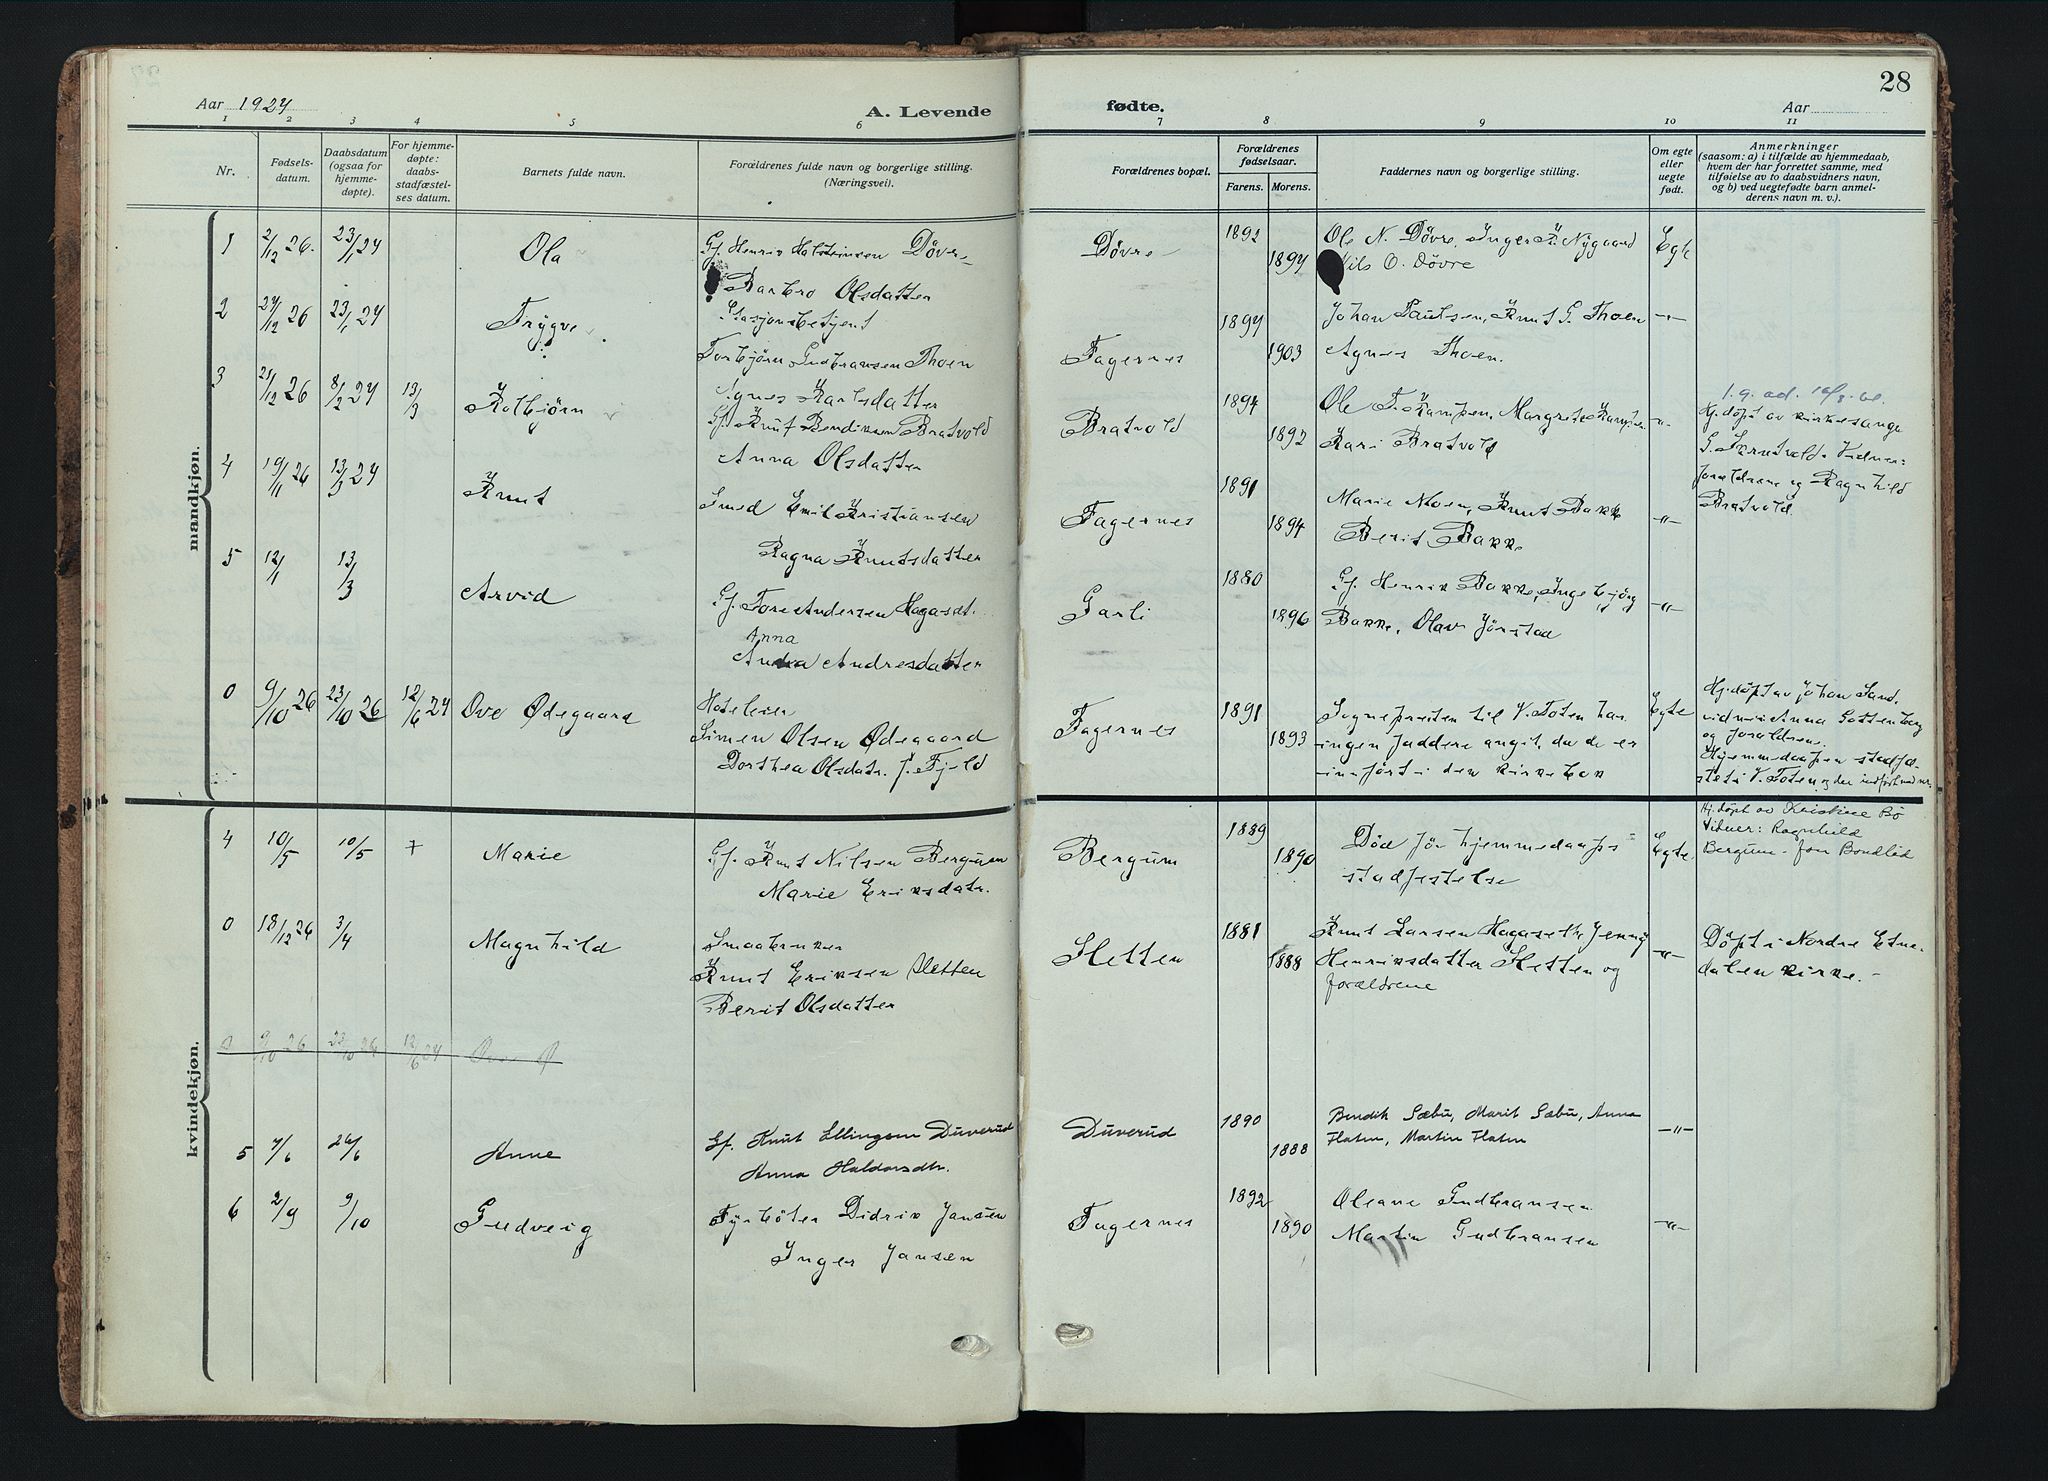 28
Aar 1927
A. Levende
fødte.
Aar
1 2 3 4 5 6 7 8 9 10 11
Nr.
Fødsels-
datum.
Daabsdatum
(ogsaa for
hjemme-
døpte).
For hjemme-
døpte:
daabs-
stadfæstel-
ses datum.
Barnets fulde navn.
Forældrenes fulde navn og borgerlige stilling.
(Næringsvei).
Forældrenes bopæl.
Forældrenes
fødselsaar.
Farens. Morens.
Faddernes navn og borgerlige stilling.
Om egte
eller
uegte
født.
Anmerkninger
(saasom: a) i tilfælde av hjemmedaab,
hvem der har forrettet samme, med
tilføielse av to daabsvidners navn,
og b) ved uegtefødte barn anmel-
derens navn m. v.).
mandkjøn.
1 2/12 26. 23/1 27 Ola
Gj. Henrik Halsteinsen Døvre
Barbro Olsdatter
Døvre 1892 1897
Ole N. Døvre, Inger K. Nygaard
Nils O. Døvre
Egte
2 27/12 26 23/1 27 Trygve
Stasjonsbetjent
Torbjörn Gudbransen Thoen
Agnes Karlsdatter
Fagernes 1897 1903
Johan Paulsen, Knut G. Thoen
Agnes Thoen.
-"-
3 21/12 26 8/2 27 13/3 Kolbjörn
Gj. Knut Bendiksen Bratvold
Anna Olsdatter
Bratvold 1894 1892
Ole T. Kampen, Margrete Kampen
Kari Bratvold
-"-
Hj.døpt av kirkesanger
G. Vidner:
forældrene og Ragnhild
Bratvold.
4 19/11 26 13/3 27 Knut
Smed Emil Kristiansen
Ragna Knutsdatter
Fagernes 1891 1894
Marie Moen, Knut Bakke
Berit Bakke
-"-
5 12/1 13/3 Arvid
Gj. Tore Andersen Hagaset.
Anna
Andresdatter
Garli 1880 1896
Gj. Henrik Bakke, Ingebjörg
Bakke, Olav Jörstad
-"-
0 9/10 26 23/10 26 12/6 27 Ove Ødegaard
Hoteleier
Simen Olsen Ødegaard
Dorthea Olsdatr. f. Fjeld
Fagernes 1891 1893
Sognepresten til V. Toten har
ingen faddere angit, da de er
infört i den kirkebok
Egte
Hj.døpt av Johan Sand,
vidner Anna Gottenborg
og forældrene.
Hjemmedaapen stadfæ-
stet i V. Toten og der indført med nr.
kvindekjøn.
4 10/5 10/5 + Marie
Gj. Knut Nilsen Bergum
Marie Eriksdatr.
Bergum 1889 1890
Död för hjemmedaaps-
stadfestelse
Egte
Hj. døpt av Kristine Bø
Vidner: Ragnhild
Bergum
0 18/12 26 3/4 Magnhild
Smaabruker
Knut Eriksen Sletten
Berit Olsdatter
Sletten 1881 1888
Knut Larsen Hagaseth, Jenny
Henriksdatter Sletten og
forældrene
-"-
Döpt i Nordre Etne-
dalen kirke.
0 9/10 26 23/10 26 12/6 27 Ove Ø
5 7/6 26/6 Anne
Gj. Knut Ellingsen Duverud
Anna Haldorsdtr.
Duverud 1890 1888
Bendik Sæbu, Marit Sæbu, Anna
Flaten, Martin Flaten
-"-
6 2/9 9/10 Gudveig
Fyrböter Didrik Jansen
Inger Jansen
Fagernes 1892 1890
Oleane Gudbransen
Martin Gudbransen
-"-